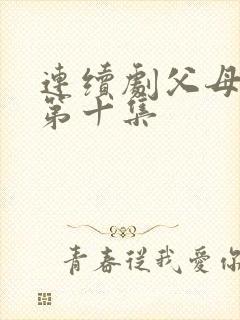 連續劇父母
第十集
青春從我愛你